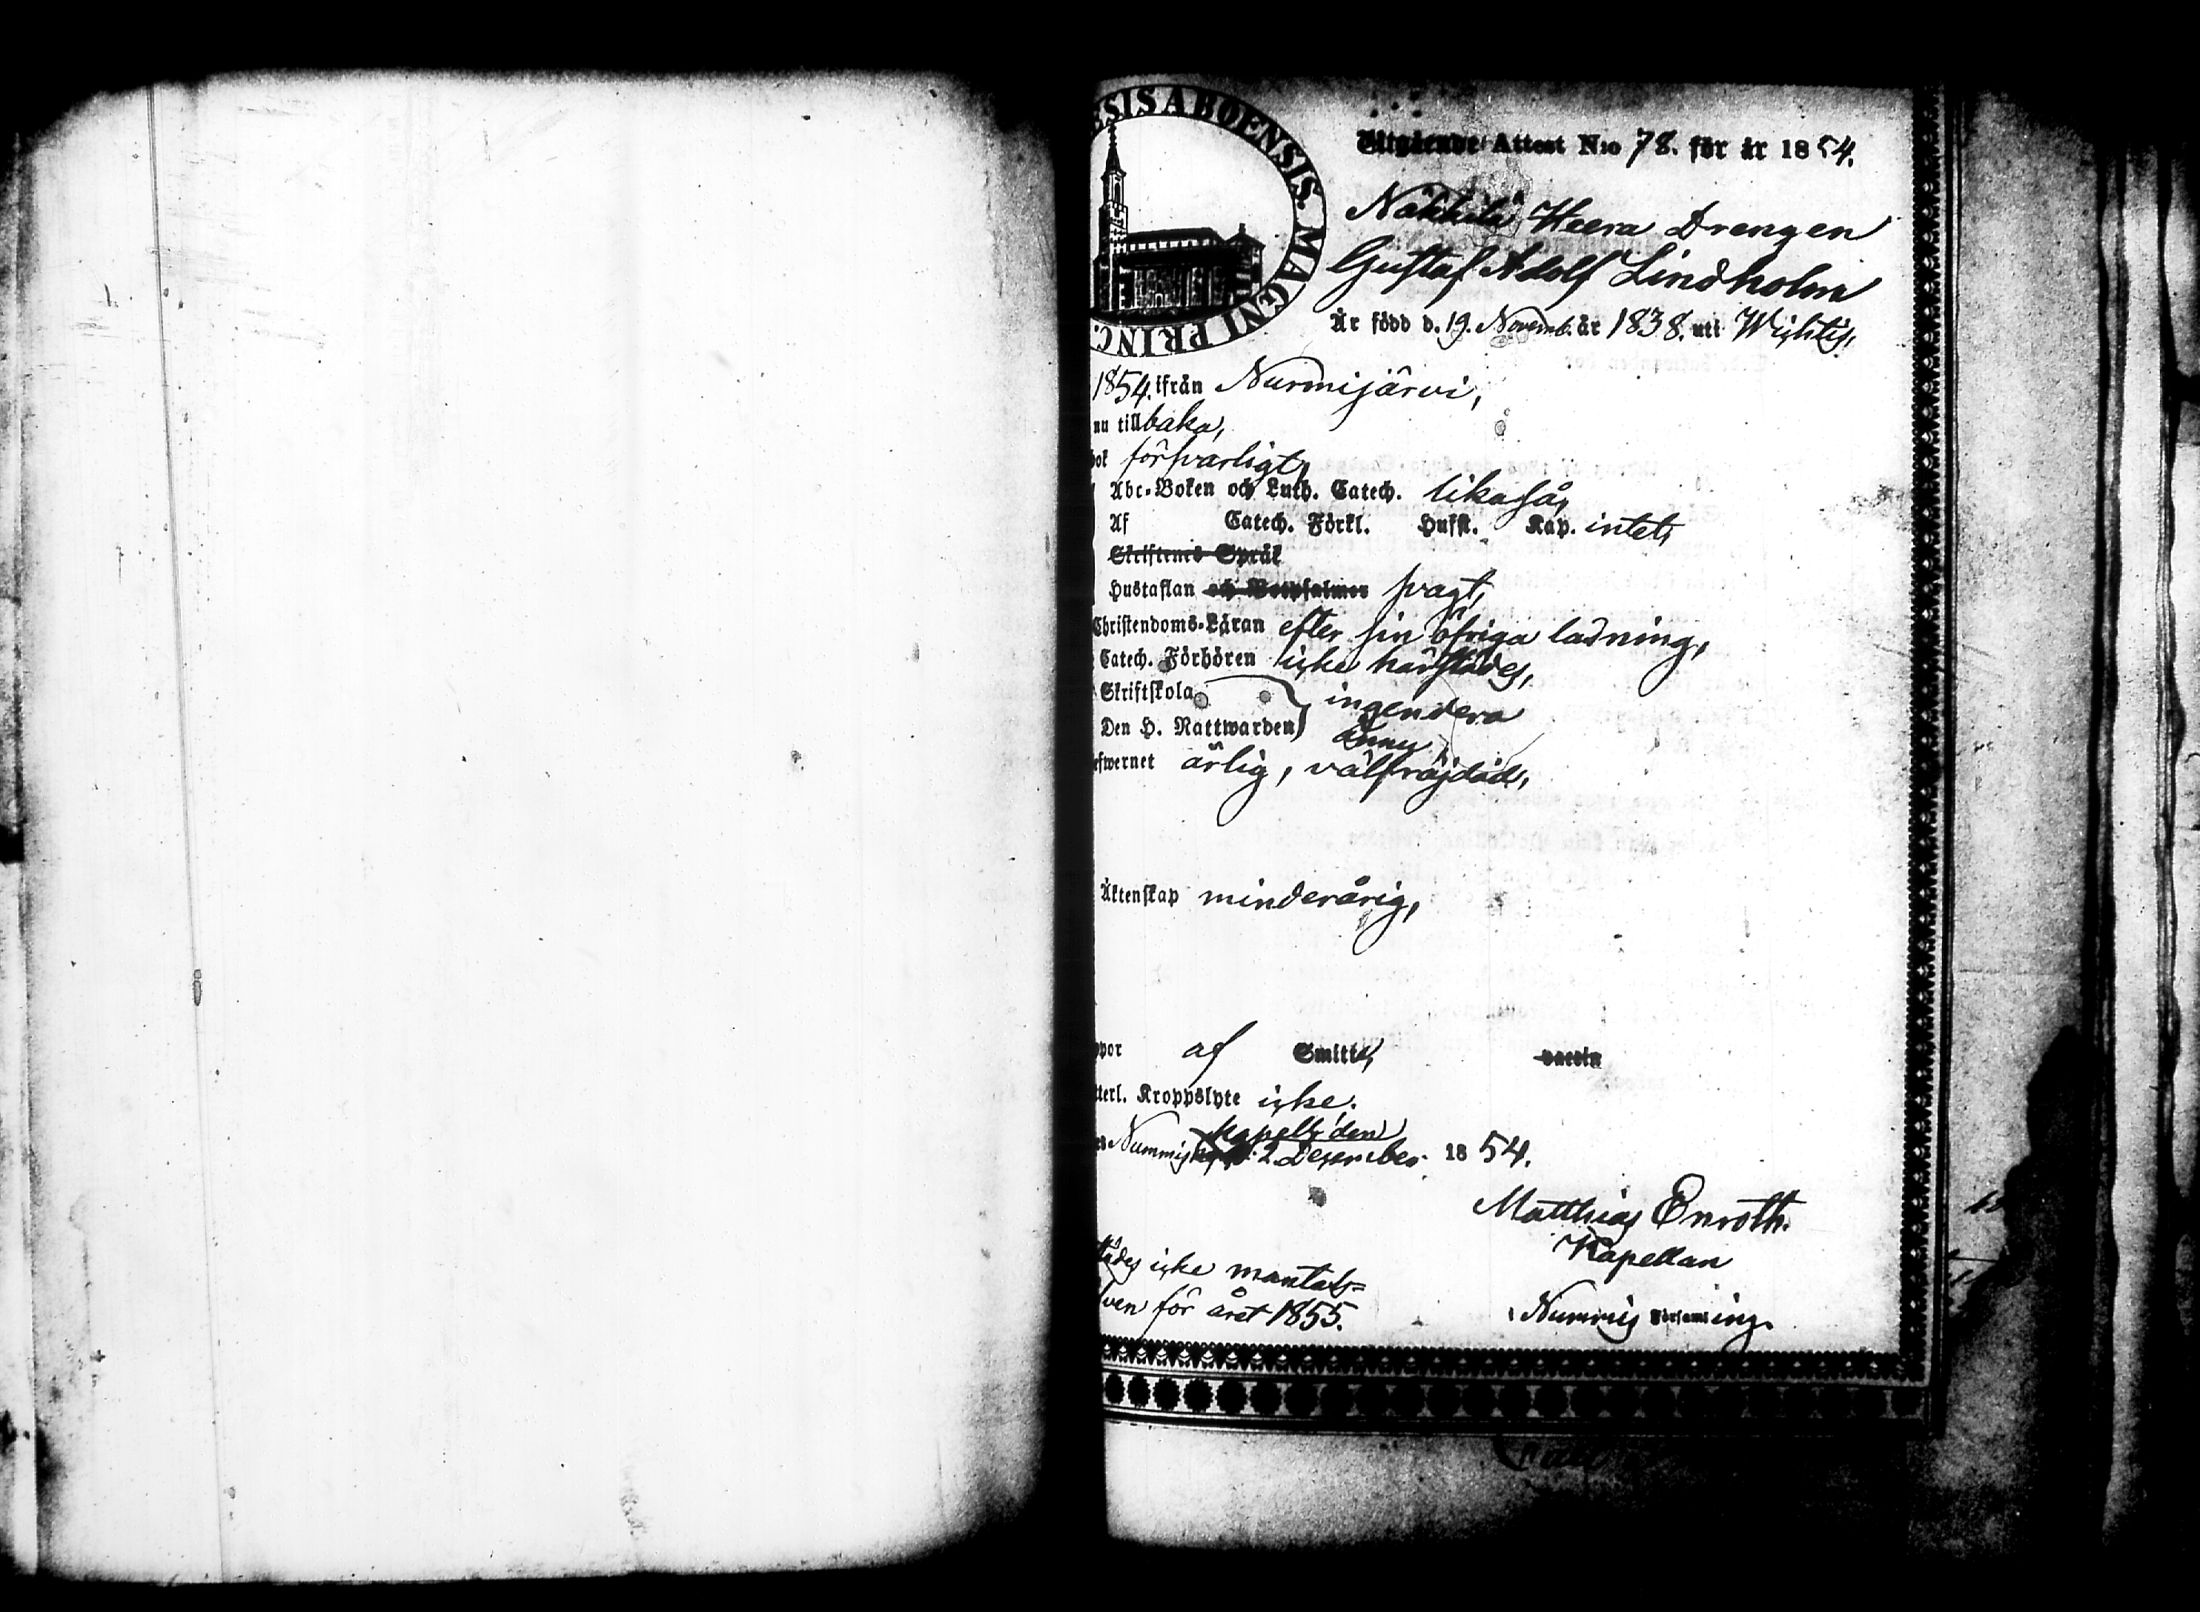 ESIS ABOENSIS. MAGNI PRINC.
Utgående Attest N:o 78. för år 1854.
Heera Drengen
Gustaf Adolf Lindholm
Är född d. 19. Novemb. år 1838. uti Wichtis,
1854. ifrån Nurmijärvi,
nu tillbaka,
bok försvarligt,
Abc-Boken och Luth. Catech. likaså,
Af Catech. Förkl. Hufst. Kap. intet,
Skriftenes Språk
Hustaflan och Botpsalmer svagt,
Christendoms-Läran efter sin öfriga ladning,
Catech. Förhören icke härstädes,
Skriftskola
ingendera
Den H. Nattwarden
ännu,
efwernet ärlig, välfräjdad,
Äktenskap minderårig,
ppor af Smitta, vaccin
tterl. Kroppslyte icke.
kapell den
Nummis 2 December 1854.
Matthias Enroth.
Kapellan
i Nummis Församling.
städes icke mantals=
ven för året 1855.